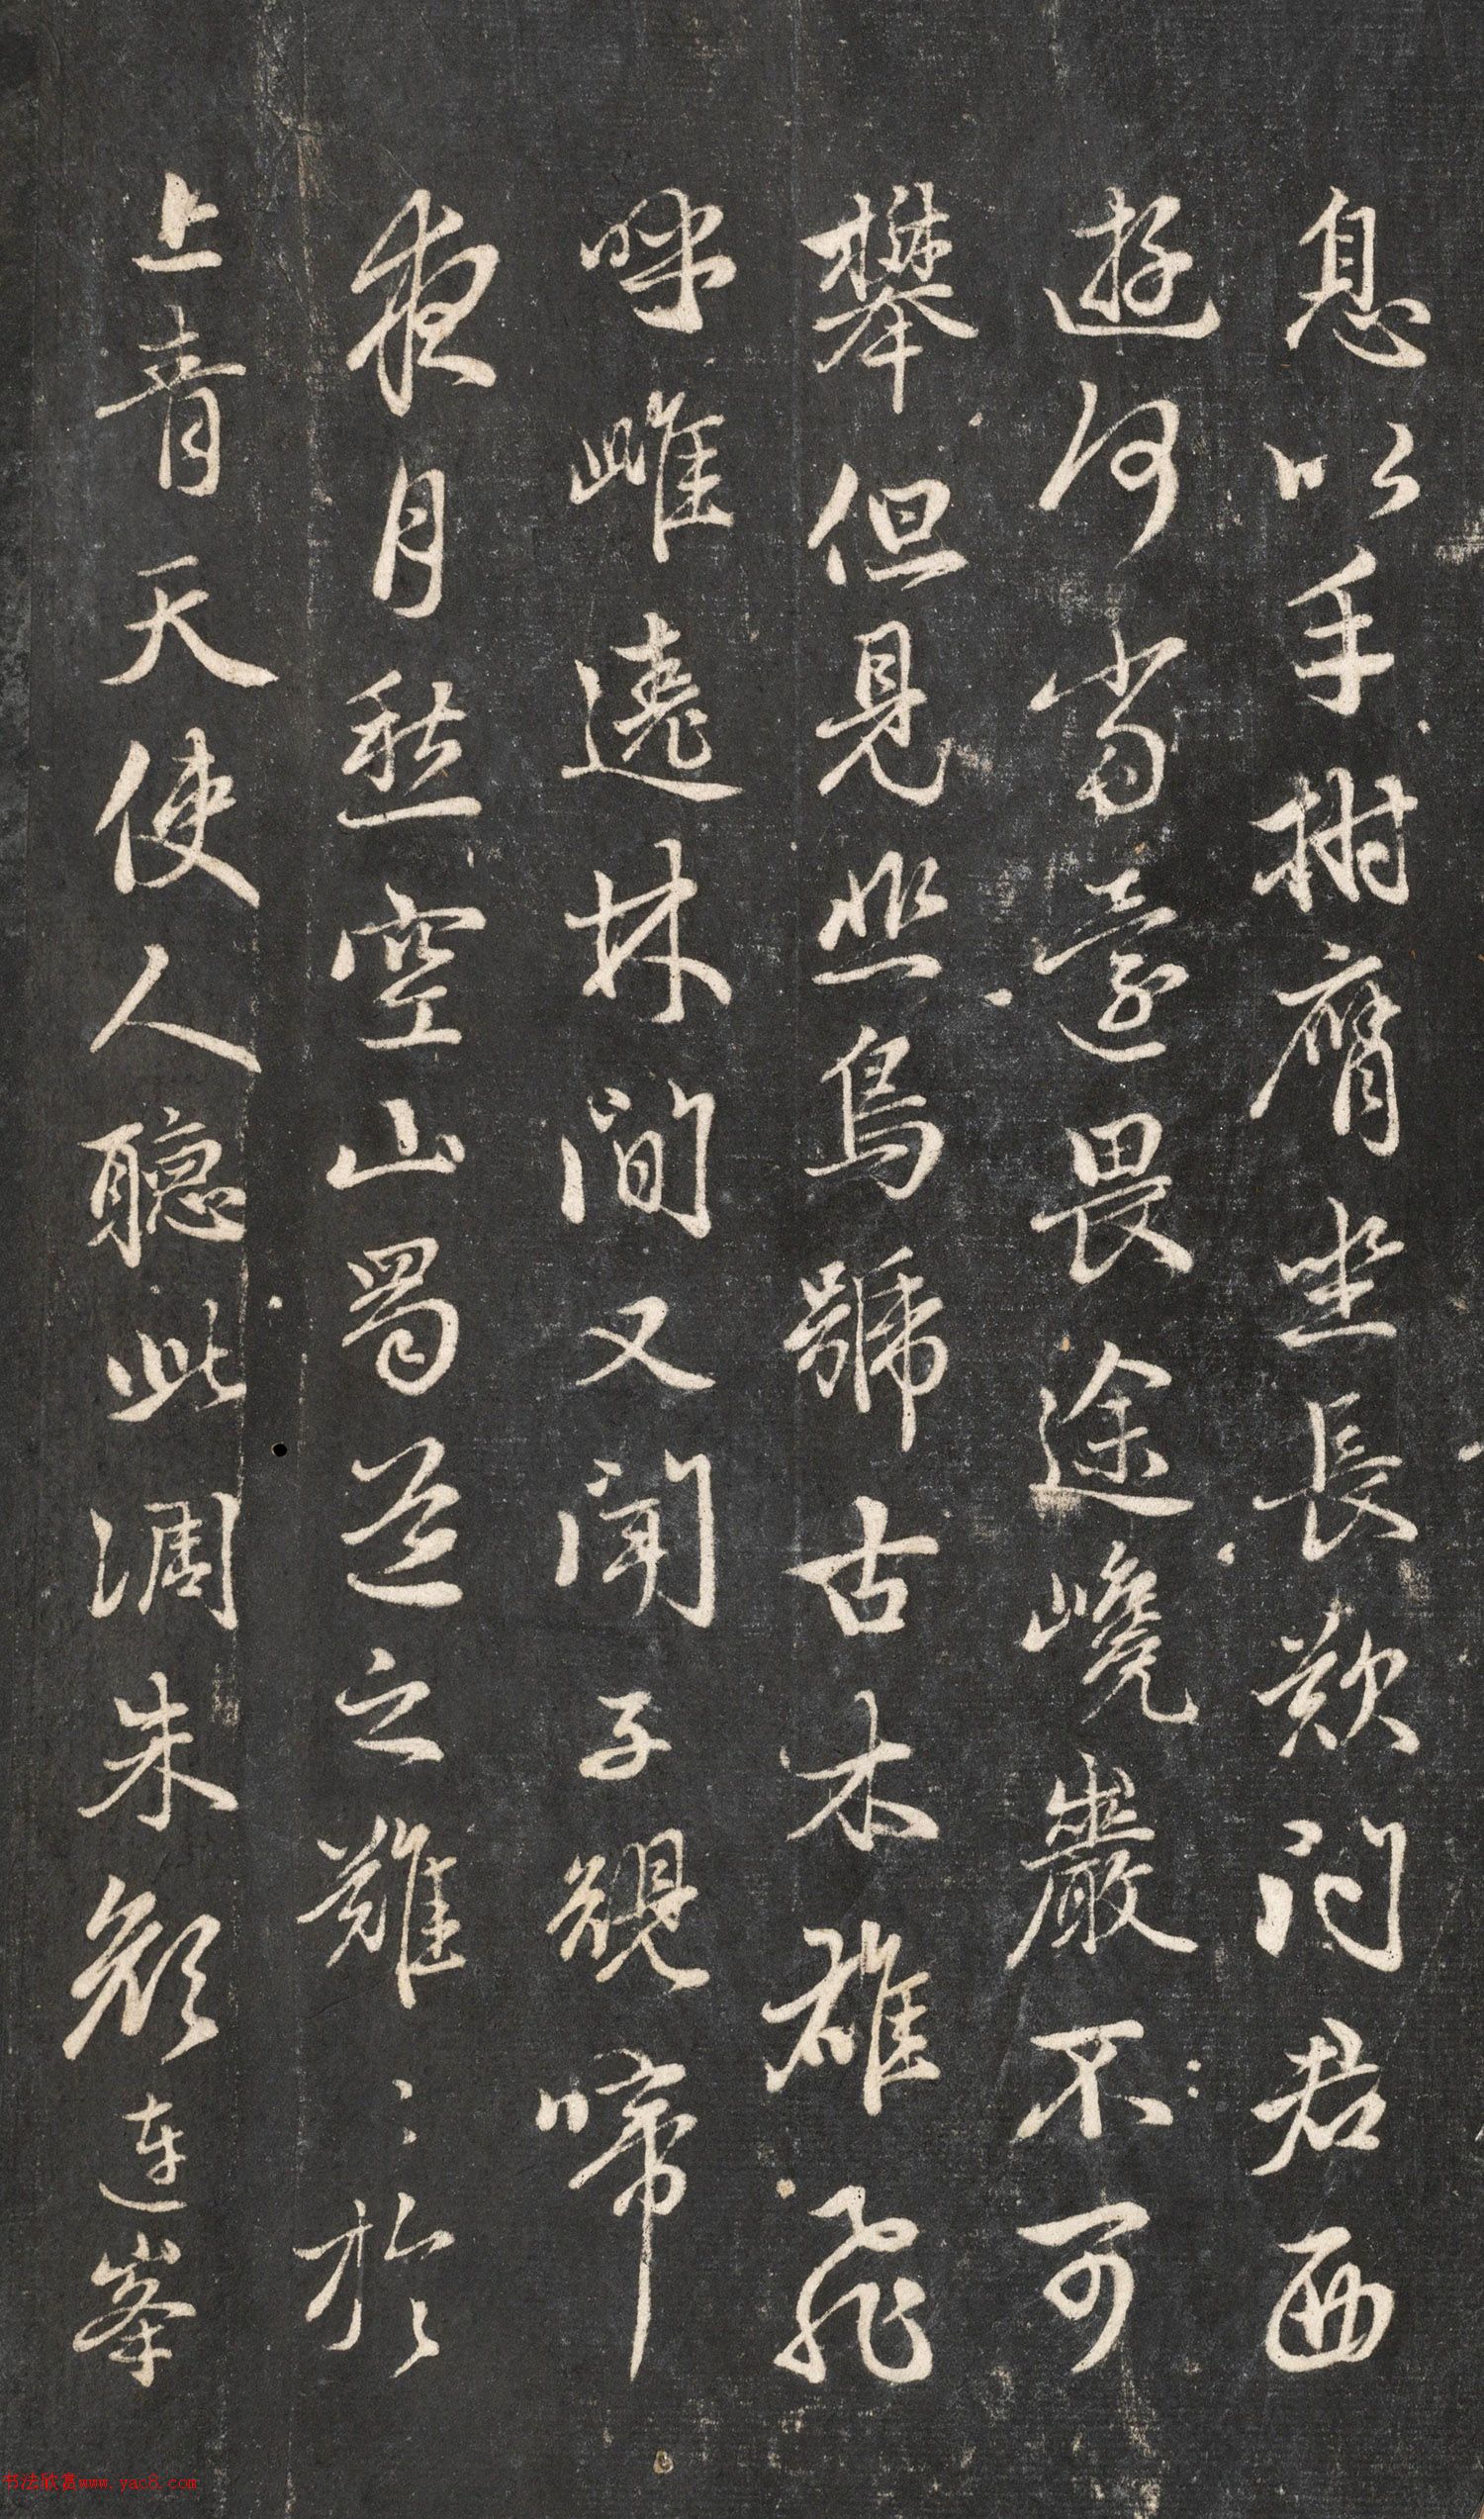 息以手拊膺坐長歎問君西
遊何當還畏途巉巖不可
攀但見悲鳥號古木雄飛
呼雌遶林間又聞子規啼
夜月愁空山蜀道之難〻於
上青天使人聽此凋朱顏連峯
书法欣赏www.yac8.com